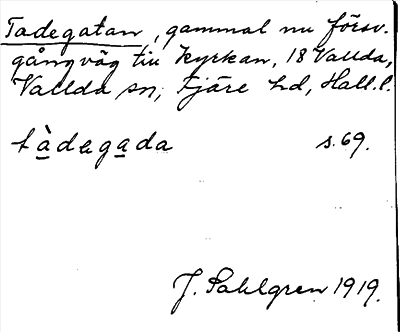 Tadegatan, gammal nu försv.
gångväg till kyrkan, 18 Vallda,
Vallda sn, Fjäre hd, Hall. l.
tàdegada s. 69.
J. Sahlgren 1919.